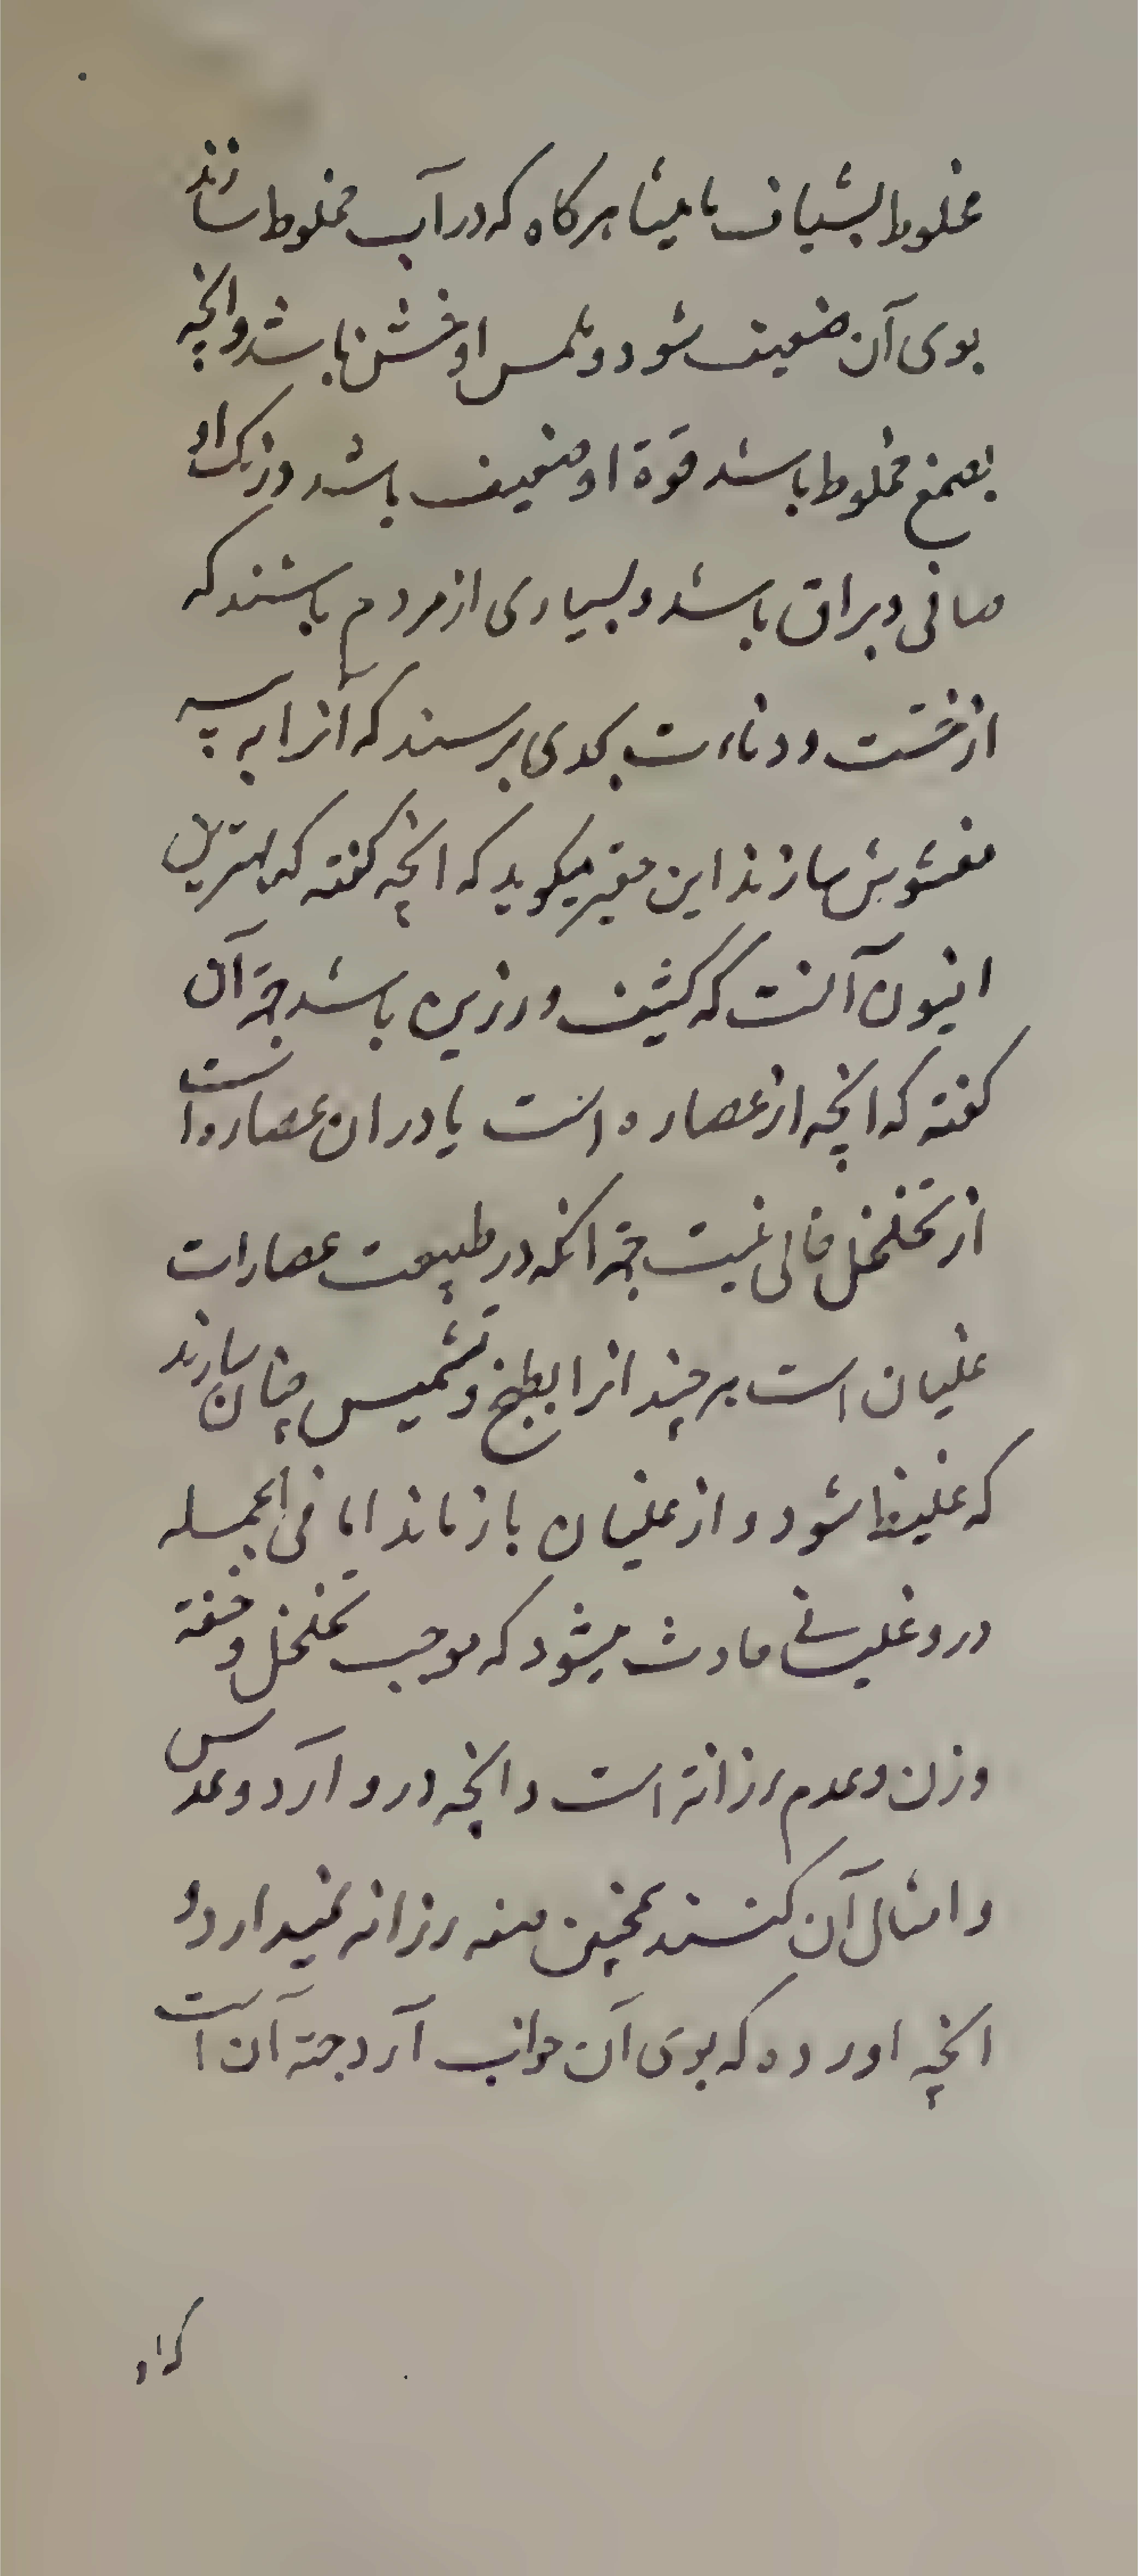 مخلوط بشیاف مامیثا هرکاه که در آب مخلوط سازند
بوی آن ضعیف شود و ملمس او خشن باشد وانچه
بصمغ مخلوط باشد قوة او ضعیف باشد و رنک او
صافی و براق باشد و بسیاری از مردم باشند که
از خست و دناءت بحدی برسند که آنرا به پیه
مغشوش سازند این حقیر میکوید که انچه کفته که بهترین
افیون آنست که کثیف و رزین باشد جهة آن
کفته که انچه از عصاره است یا در ان عصاره است
از تخلخل خالی نیست جهة انکه در طبیعت عصارات
غلیان است هر چند انرا بطبخ و تشمیس چنان سازند
که غلیظ شود و از غلیان باز ماند اما فی الجمله
درو غلیانی حادث میشود که موجب تخلخل و خفة
وزن و عدم رزانة است و انچه درو آرد و عدس
و امثال آن کنند همچنین صفه رزانه نمیدارد و
انچه اورده که بوی آن خواب آرد جهة آن است
که او